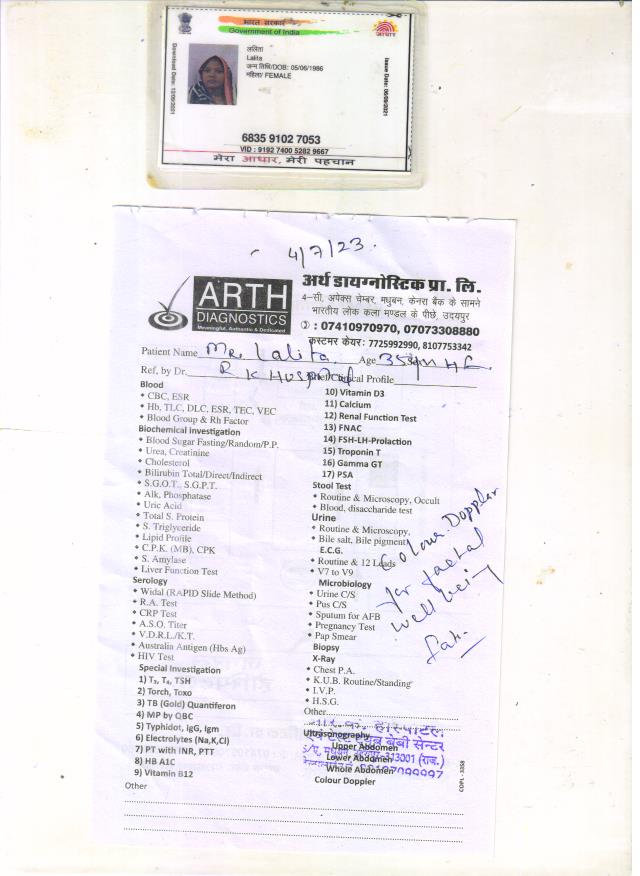 भारत सरकार
Government of India
आधार
Download Date: 12/09/2021
ललिता
Lalita
जन्म तिथि/DOB: 05/06/1986
महिला/ FEMALE
Issue Date: 06/09/2021
6835 9102 7053
VID : 9192 7400 5282 9667
मेरा आधार, मेरी पहचान
4/7/23.
ARTH
DIAGNOSTICS
Meaningful, Authentic & Dedicated
अर्थ डायग्नोस्टिक प्रा. लि.
4-सी, अपेक्स चेम्बर, मधुबन, केनरा बैंक के सामने
भारतीय लोक कला मण्डल के पीछे, उदयपुर
: 07410970970, 07073308880
कस्टमर केयर: 7725992990, 8107753342
Patient Name Mr. Lalita. Age 35
Ref, by Dr. R K Hospital Clinical Profile
Blood
CBC, ESR
Hb, TLC, DLC, ESR, TEC, VEC
Blood Group & Rh Factor
Biochemical Investigation
Blood Sugar Fasting/Random/P.P.
Urea, Creatinine
Cholesterol
Bilirubin Total/Direct/Indirect
S.G.O.T., S.G.P.T.
Alk, Phosphatase
Uric Acid
Total S. Protein
S. Triglyceride
Lipid Profile
C.P.K. (MB), CPK
S. Amylase
Liver Function Test
Serology
Widal (RAPID Slide Method)
R.A. Test
CRP Test
A.S.O. Titer
V.D.R.L./K.T.
Australia Antigen (Hbs Ag)
HIV Test
Special Investigation
1) T₃, T₄, TSH
2) Torch, Toxo
3) TB (Gold) Quantiferon
4) MP by QBC
5) Typhidot, IgG, Igm
6) Electrolytes (Na,K,Cl)
7) PT with INR, PTT
8) HB A1C
9) Vitamin B12
Other
10) Vitamin D3
11) Calcium
12) Renal Function Test
13) FNAC
14) FSH-LH-Prolaction
15) Troponin T
16) Gamma GT
17) PSA
Stool Test
Routine & Microscopy, Occult
Blood, disaccharide test
Urine
Routine & Microscopy,
Bile salt, Bile pigment
E.C.G.
Routine & 12 Leads
V7 to V9
Microbiology
Urine C/S
Pus C/S
Sputum for AFB
Pregnancy Test
Pap Smear
Biopsy
X-Ray
Chest P.A.
K.U.B. Routine/Standing
I.V.P.
H.S.G.
Other
Ultrasonography
Upper Abdomen
Lower Abdomen
Whole Abdomen
Colour Doppler
Colour Doppler
for faetal
well being
हॉस्पीटल
बेबी सेन्टर
313001 (राज.)
COPL - 3358